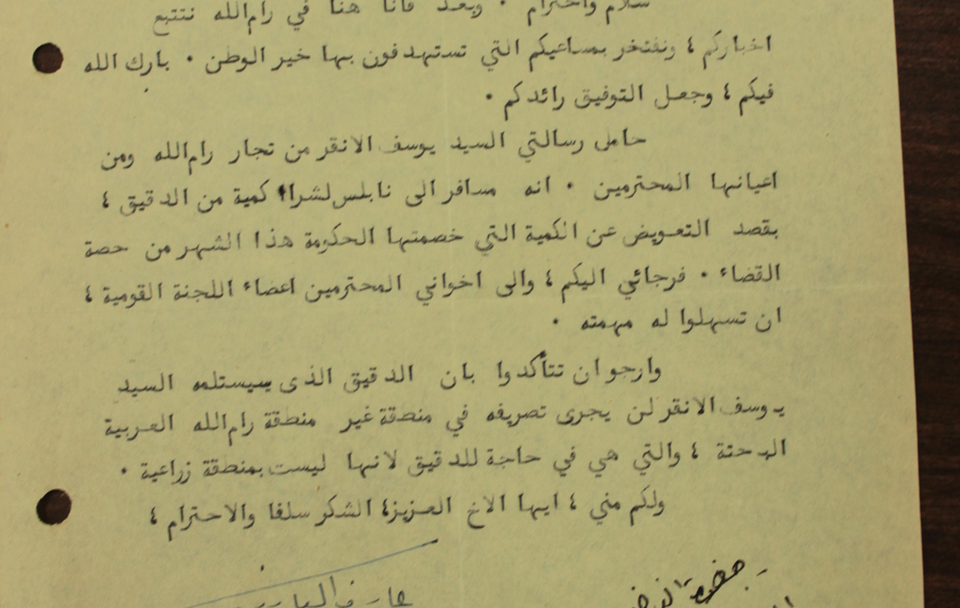 سلام واحترام . وبعد فانا هنا في رام الله نتتبع
اخباركم ، ونفتخر بمساعيكم التي تستهدفون بها خير الوطن . بارك الله
فيكم ، وجعل التوفيق رائدكم .
حامل رسالتي السيد يوسف الانقر من تجار رام الله ومن
اعيانها المحترمين . انه مسافر الى نابلس لشراء كمية من الدقيق ،
بقصد التعويض عن الكمية التي خصمتها الحكومة هذا الشهر من حصة
القضاء . فرجائي اليكم ، والى اخواني المحترمين اعضاء اللجنة القومية ،
ان تسهلوا له مهمته .
وارجو ان تتأكدوا بان الدقيق الذى سيستلمه السيد
يوسف الانقر لن يجرى تصريفه في منطقة غير منطقة رام الله العربية
البحتة ، والتي هي في حاجة للدقيق لانها ليست بمنطقة زراعية .
ولكم مني ، ايها الاخ العزيز، الشكر سلفا والاحترام ،
عارف
حضرة